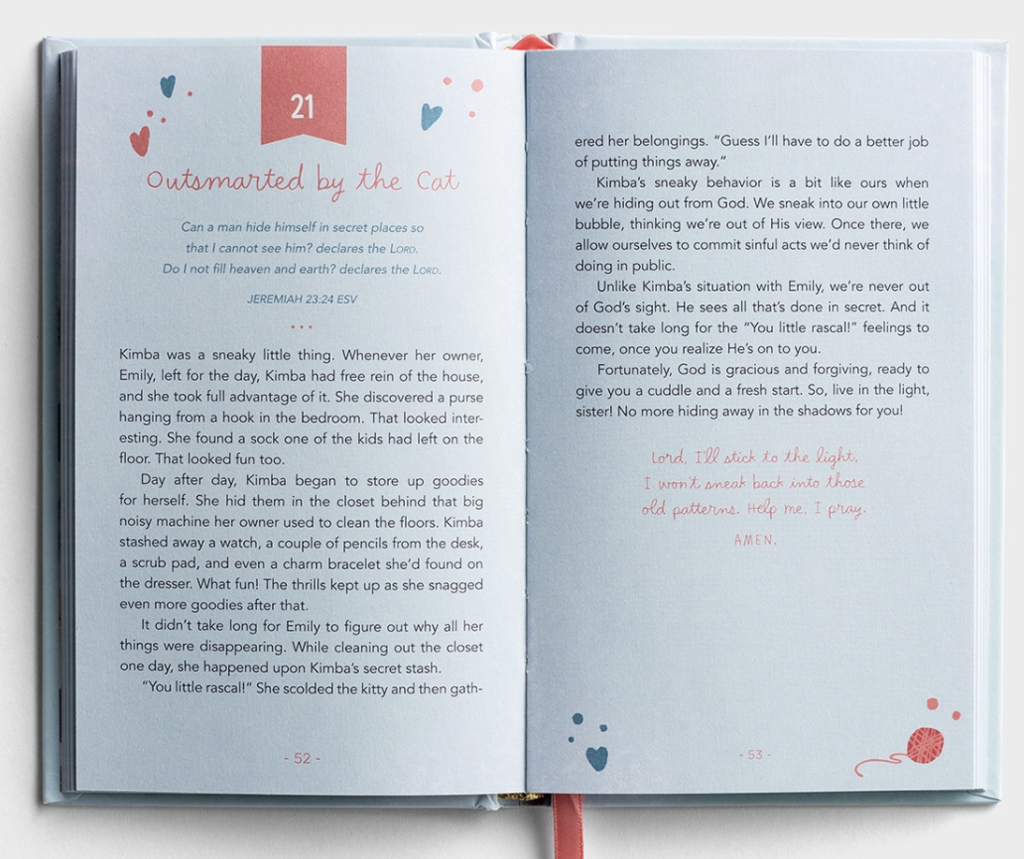 21
Outsmarted by the Cat
Can a man hide himself in secret places so
that I cannot see him? declares the LORD.
Do I not fill heaven and earth? declares the LORD.
JEREMIAH 23:24 ESV
Kimba was a sneaky little thing. Whenever her owner,
Emily, left for the day, Kimba had free rein of the house,
and she took full advantage of it. She discovered a purse
hanging from a hook in the bedroom. That looked inter-
esting. She found a sock one of the kids had left on the
floor. That looked fun too.
Day after day, Kimba began to store up goodies
for herself. She hid them in the closet behind that big
noisy machine her owner used to clean the floors. Kimba
stashed away a watch, a couple of pencils from the desk,
a scrub pad, and even a charm bracelet she’d found on
the dresser. What fun! The thrills kept up as she snagged
even more goodies after that.
It didn’t take long for Emily to figure out why all her
things were disappearing. While cleaning out the closet
one day, she happened upon Kimba’s secret stash.
“You little rascal!” She scolded the kitty and then gath-
- 52 -
ered her belongings. “Guess I’ll have to do a better job
of putting things away.”
Kimba’s sneaky behavior is a bit like ours when
we’re hiding out from God. We sneak into our own little
bubble, thinking we’re out of His view. Once there, we
allow ourselves to commit sinful acts we’d never think of
doing in public.
Unlike Kimba’s situation with Emily, we’re never out
of God’s sight. He sees all that’s done in secret. And it
doesn’t take long for the “You little rascal!” feelings to
come, once you realize He’s on to you.
Fortunately, God is gracious and forgiving, ready to
give you a cuddle and a fresh start. So, live in the light,
sister! No more hiding away in the shadows for you!
Lord, I’ll stick to the light.
I won’t sneak back into those
old patterns. Help me, I pray.
AMEN.
- 53 -